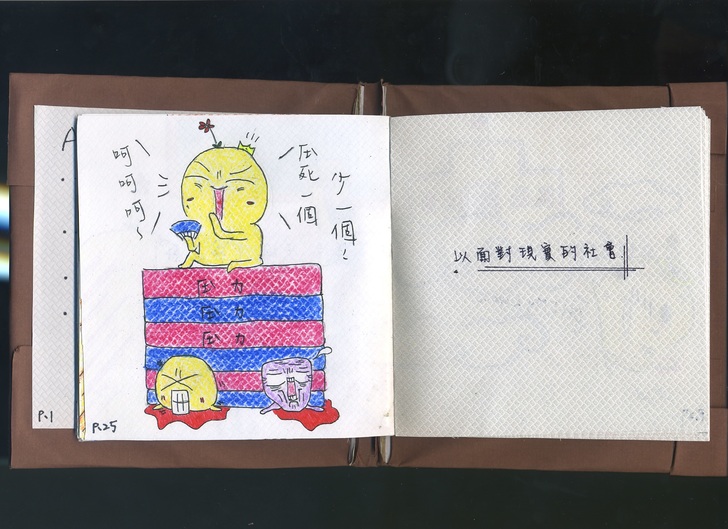 A
呵
呵
呵~
压死一個
少一個!
压力
压力
压力
P.1
P.25
以面對現實的社會